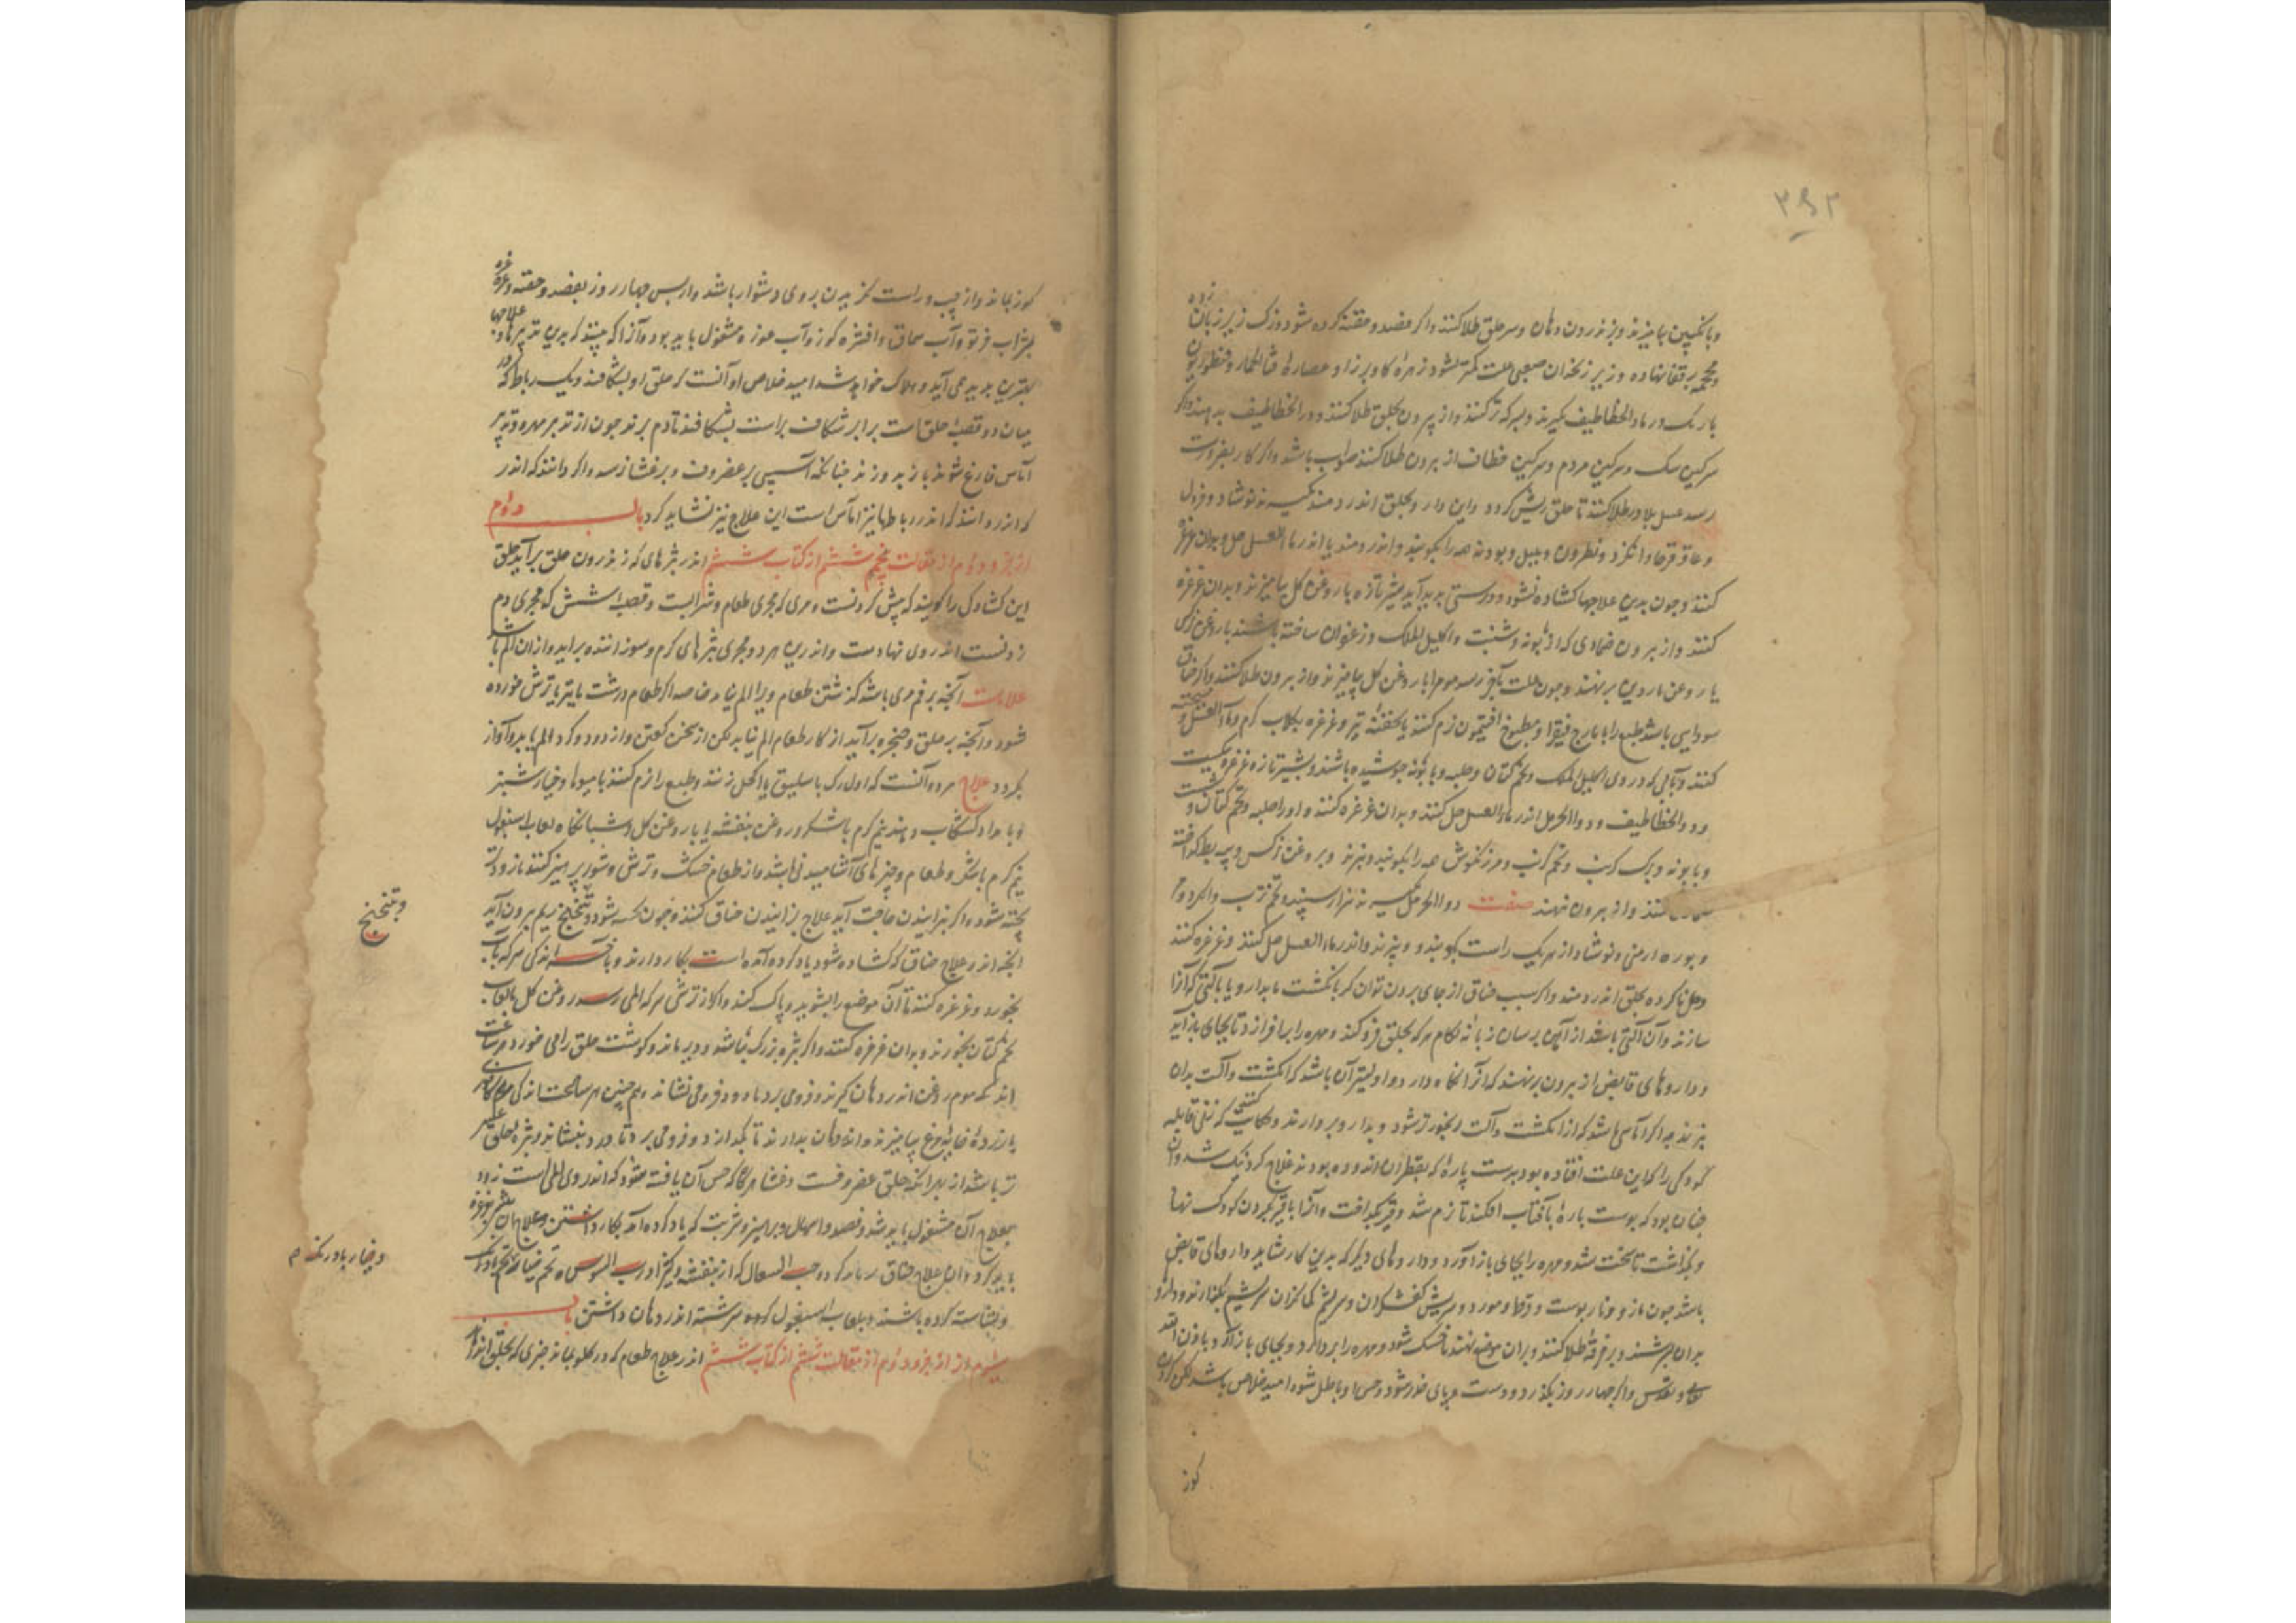 ۳۹۲
و بانگبین بیامیزند و بزندرون دهان و سر حلق طلا کنند و اگر فصد و حقنه کرده شود و رگ زیر زبان زده
و محجمه بر قفا نهاده و زیر زنخدان صعبی علت کمتر نشود زهرهٔ گاو برزاو عصارهٔ قثاءالحمار و قنطوریون
باریک و رماد الخطاطیف بگیرند و بسرکه تر کنند و از بیرون بحلق طلا کنند و دواء الخطاطیف بدهند و اگر
سرگین سگ و سرگین مردم و سرگین خطاف از بیرون طلا کنند صواب باشد و اگر کار بضرورت
رسد عسل بلادر طلا کنند تا حلق ریش گردد و این دارو بحلق اندر دمند بگیرند نوشادر و فلفل
و عاقرقرحا و انگزد و نطرون و پودنه همه را بکوبند و اندر دمند یا اندر ماءالعسل حل و بدان غرغره
کنند و چون بدین علاجها گشاده نشود و درستی پدید آید شیر تازه با روغن گل بیامیزند و بدان غرغره
کنند و از بیرون ضمادی که از بابونه و شبت و اکلیل الملک و زعفران ساخته باشند با روغن نرگس
یا روغن ناردین برنهند و چون علت بآخر رسد موم را با روغن گل بیامیزند و از بیرون طلا کنند و اگر خناق
سودایی باشد طبع را بایارج فیقرا و مطبوخ افتیمون نرم کنند یا بحقنهٔ تیز و غرغره بجلاب گرم و ماءالعسل و میپخته
کنند و بآبی که در وی اکلیل الملک و تخم کتان و حلبه و بابونه جوشیده باشند و بشیر تازه غرغره
و دواء الخطاطیف و دواء الحرمل اندر ماءالعسل حل کنند و بدان غرغره کنند و اورا حلبه و تخم کتان و شبت
و بابونه و برگ کرنب و تخم کرنب و مرزنگوش همه را بکوبند و بپزند و بروغن نرگس و پیه بط گداخته
کنند و از بیرون نهند صفت دواء الحرمل بگیرند هزار سپند و تخم ترب
و بوره ارمنی و نوشادر از هر یک راست بکوبند و بپزند و اندر ماءالعسل حل کنند و غرغره کنند
و حل ناکرده بحلق اندر دمند و اگر سبب خناق از جای بیرون توان کر بانگشت یا بدارو یا بآلتی که آنرا
سازند و آن آلتی باشد از آهن برسان زبانهٔ لگام که بحلق فرو کند و مهره را برافرازد تا بجای باز آید
و داروهای قابض از بیرون برنهند که آنرا نگاه دارد و اولیتر آن باشد که انگشت و آلت بدان
نبرند چه اگر آماسی باشد که از انگشت و آلت رنجورتر شود و بدارو بردارند و حکایت کنند که زنی قابله
کودکی را که این علت افتاده بود بدست پارهٔ که بقطران اندوده بود علاج کرد نیک شد و آن
چنان بود که پوست پارهٔ بآفتاب افکند تا نرم شد و قیر بگداخت و آنرا با قیر بگردن کودک نهاد
و بگذاشت تا سخت شد و مهره را بجای باز آورد و داروهای دیگر که بدین کار شاید داروهای قابض
باشد چون مازو و نارپوست و قرط و مورد و سریش کفشگران و سریشم کمانگران سریشم بگدازند و داروها
بدان بسرشند و بر خرقهٔ طلا کنند و بران موضع نهند تا خشک شود و مهره را بردارد و بجای باز آرد باذن الله
تعالی و تقدس و اگر چهار روز بگذرد و دست و پای خدر شود و حس او باطل شود امید خلاص باشد لکن گردن
کوز
کوز بماند و از چپ و راست نگریدن بر وی دشوار باشد و از پس چهار روز بفصد و حقنه و غرغره
بشراب فرتوت و آب سماق و افشره گوز و آب غوره مشغول باید بود و آنرا که بینند که بدین تدبیرها و علاجها
بهترین پدید نمی آید و هلاک خواهد شد امید خلاص او آنست که حلق او بشکافند و یک رباط که در
میان دو قصبهٔ حلق است برابر شکاف براست بشکافند تا دم برزند چون از تدبیر مهره و تدبیر
آماس فارغ شوند باز بدوزند چنانکه آسیبی بر غضروف و بر غشا نرسد و اگر دانند که اندر
که اندر دانند که اندر رباطها نیز آماس است این علاج نیز نشاید کرد باب دوم
از جزو دوم از مقالت پنجم ششم از کتاب ششم اندر بثرهای که ز اندرون حلق برآید حلق
این گشادگی را گویند که پیش گردنست و مری که مجری طعام و شرابست و قصبهٔ شش که مجری دم
زدنست اندر وی نهادست و اندرین هر دو مجری بثرهای گرم و سوزاننده برآید و از ان الم باشد
علامت آنچه بر فم مری باشد گذشتن طعام ویرا الم نماید خاصه اگر طعام درشت یا تیز یا ترش خورده
شود و آنچه بر حلق و حنجره برآید از گذر طعام الم نیابد لکن از سخن گفتن و از دود و گرد الم یابد و آواز
بگردد علاج هر دو آنست که اول رگ باسلیق یا اکحل زنند و طبع را نرم کنند بامیوها و خیار شنبر
و بامداد کشکاب دهند نیم گرم با شکر و روغن بنفشه یا با روغن گل و شبانگاه لعاب اسبغول
نیم گرم با شکر و طعام و چیزهای آشامیدنی باشد و از طعام خشک و ترش و شور پرهیز کنند تا زودتر
پخته شود و اگر بزایندن حاجت آید علاج بزایندن خناق کنند و چون پخته شود و بتنحنح ریم بیرون آید
آنچه اندر علاج خناق که گشاده شود یاد کرده آمده است بکار دارند و با اندکی سرکه بآب
بخورد و غرغره کنند تا آن موضع را بشوید و پاک کند و اگر از ترشی سرکه المی رسد روغن گل بالعاب
تخم کتان بخورند و بدان غرغره کنند و اگر بثره بزرگ باشد و دیر ماند و گوشت حلق را می خورد هر ساعت
اندک موم روغن اندر دهان گیرند و فرو می برد تا درد فرو می نشاند و هم چنین هر ساعت اندکی
با زردهٔ خایهٔ مرغ بیامیزند و اندر دهان بدارند تا بگدازد و فرو می برد تا درد بنشاند و بثره بحلق
تر باشد از بهر آنکه حلق غضروفست و غشا هرگاه که حس آن یافته شود که اندر وی المی است زود
بعلاج آن مشغول باید شد و فصد و اسهال و پرهیز و شربت که یاد کرده آمد بکار داشتن و علاج آن
باید کرد و آن علاج خناق و حب السعال که از بنفشه و کثیرا و رب السوس و تخم خیار و تخم بادرنگ
و نشاسته کرده باشند و بلعاب اسبغول کرده سرشته اندر دهان داشتن باب
سوم از جزو دوم از مقالت ششم از کتاب ششم اندر علاج طعام که در گلو بماند چیزی که بحلق اندر
و تنحنح
و خیار بادرنگ م